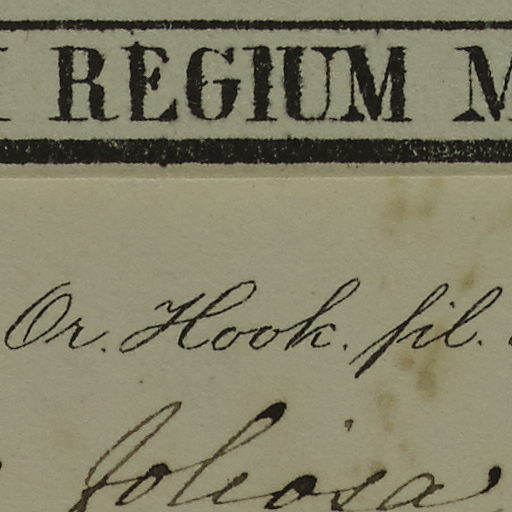 REGIUM M
Or. Hook. fil.
foliosa